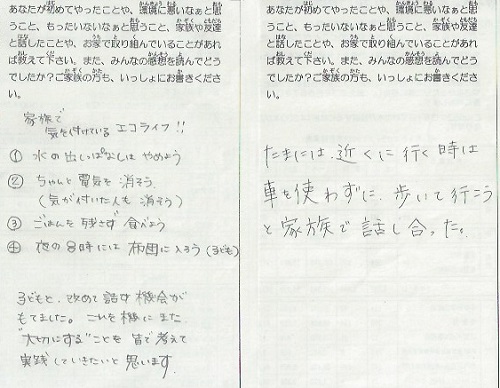 あなたが初めてやったことや、環境に悪いなぁと思
うこと、もったいないなぁと思うこと、家族や友達
と話したことや、お家で取り組んでいることがあれ
ば教えて下さい。また、みんなの感想を読んでどう
でしたか？ご家族の方も、いっしょにお書きくださ
い。
家族で
気を付けている エコライフ!!
① 水の出しっぱなしは やめよう
② ちゃんと電気を消そう
(気が付いた人も 消そう)
③ ごはんを残さず食べよう
④ 夜の8時には 布団に入ろう (子ども)
子どもと、改めて話す機会が
もてました。これを機にまた
"大切にする"ことを皆で考えて
実践していきたいと思います。
あなたが初めてやったことや、環境に悪いなぁと思
うこと、もったいないなぁと思うこと、家族や友達
と話したことや、お家で取り組んでいることがあれ
ば教えて下さい。また、みんなの感想を読んでどう
でしたか？ご家族の方も、いっしょにお書きくださ
い。
たまには、近くに行く時は
車を使わずに、歩いて行こう
と家族で話し合った。